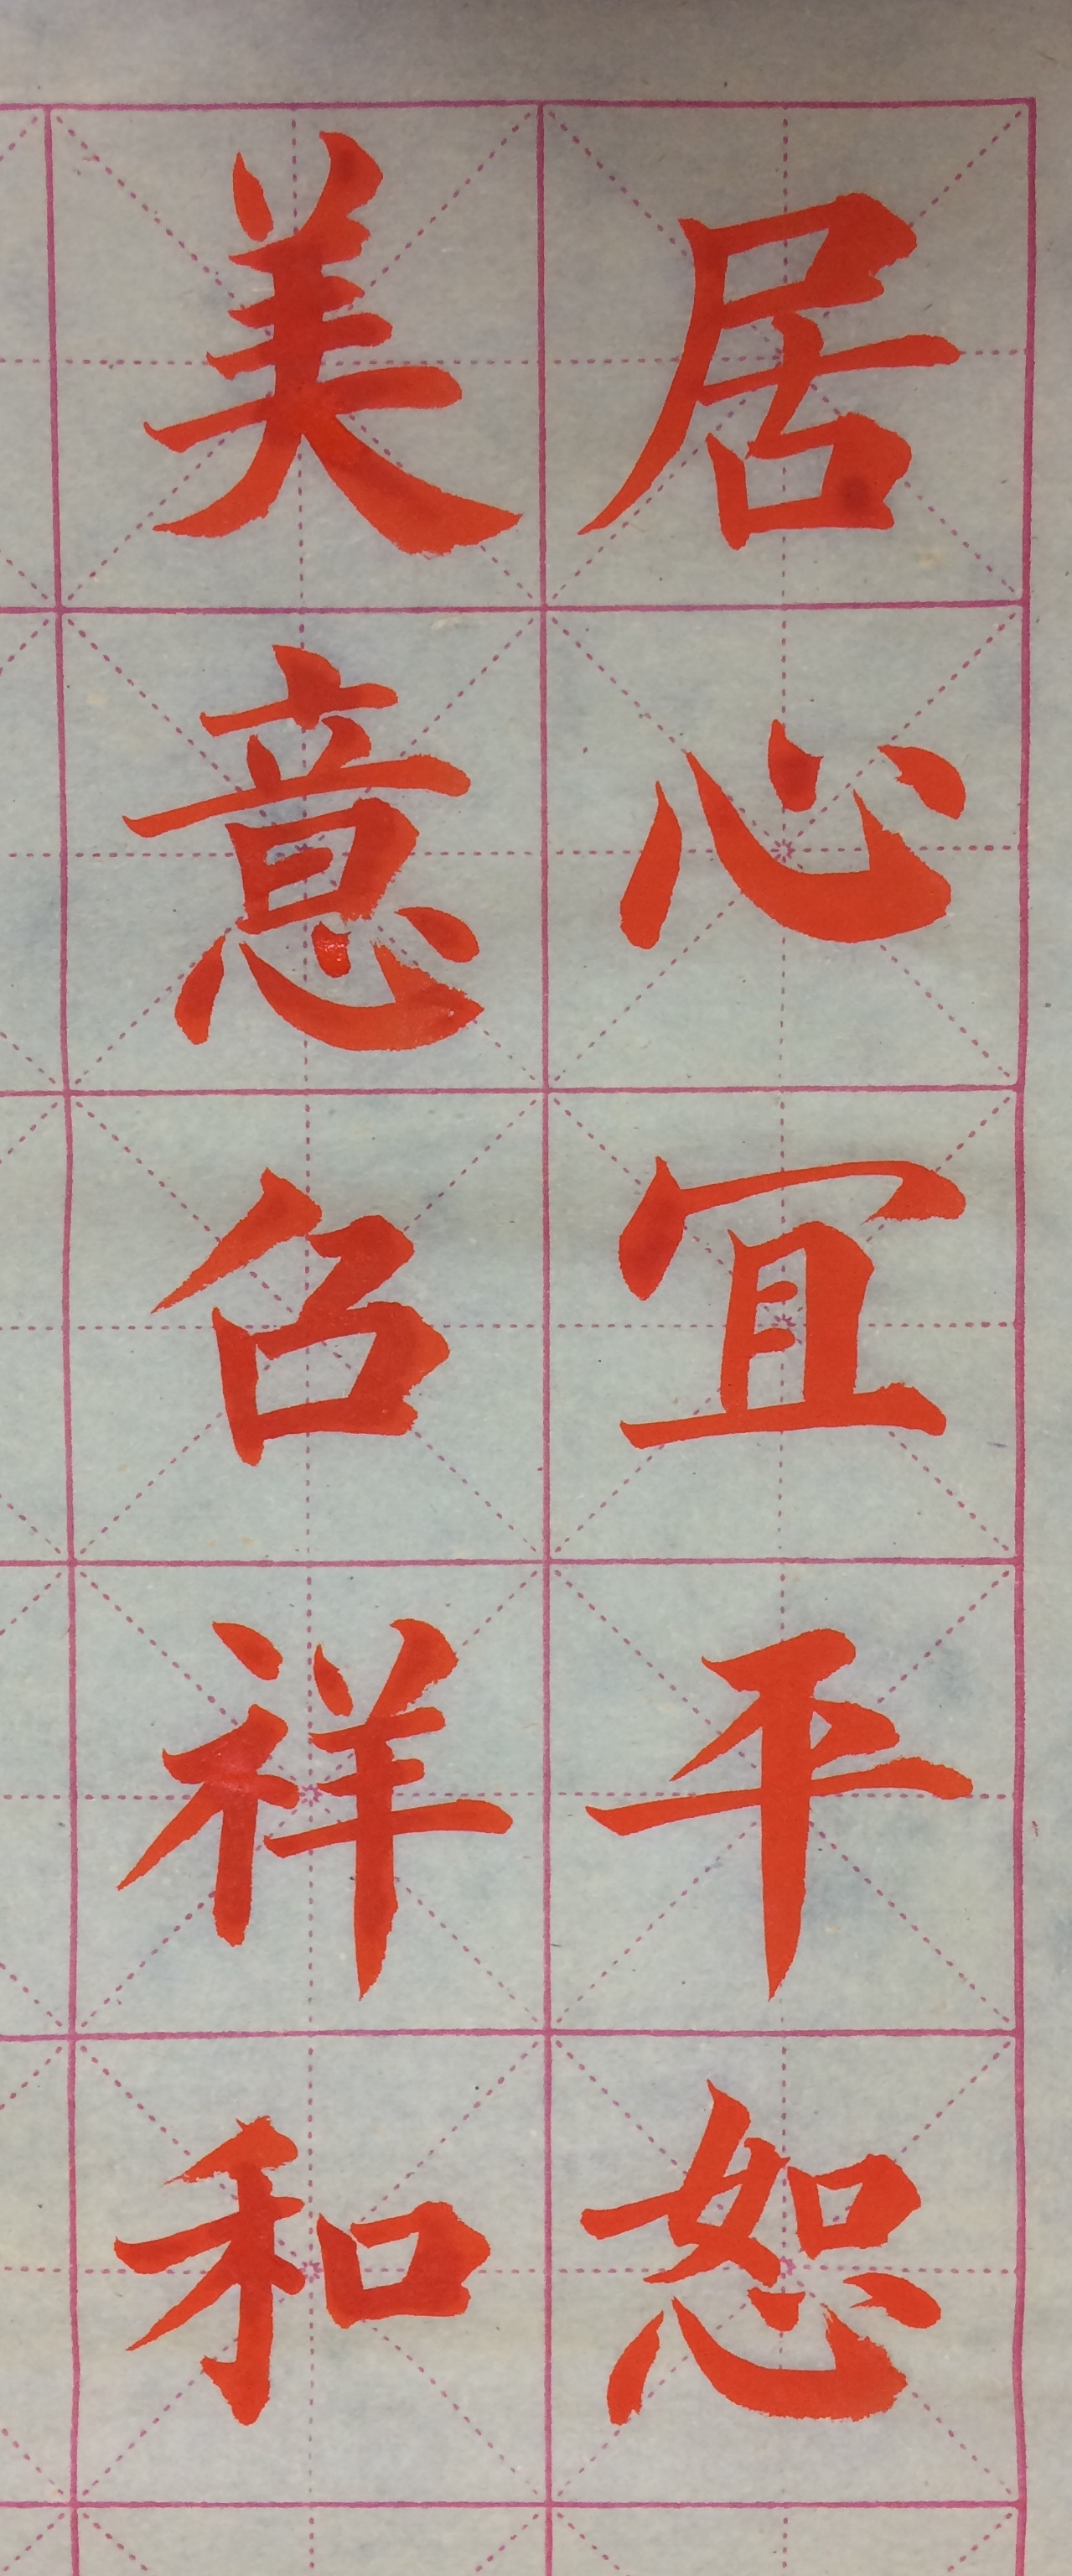 居心冝平恕
美意召祥和